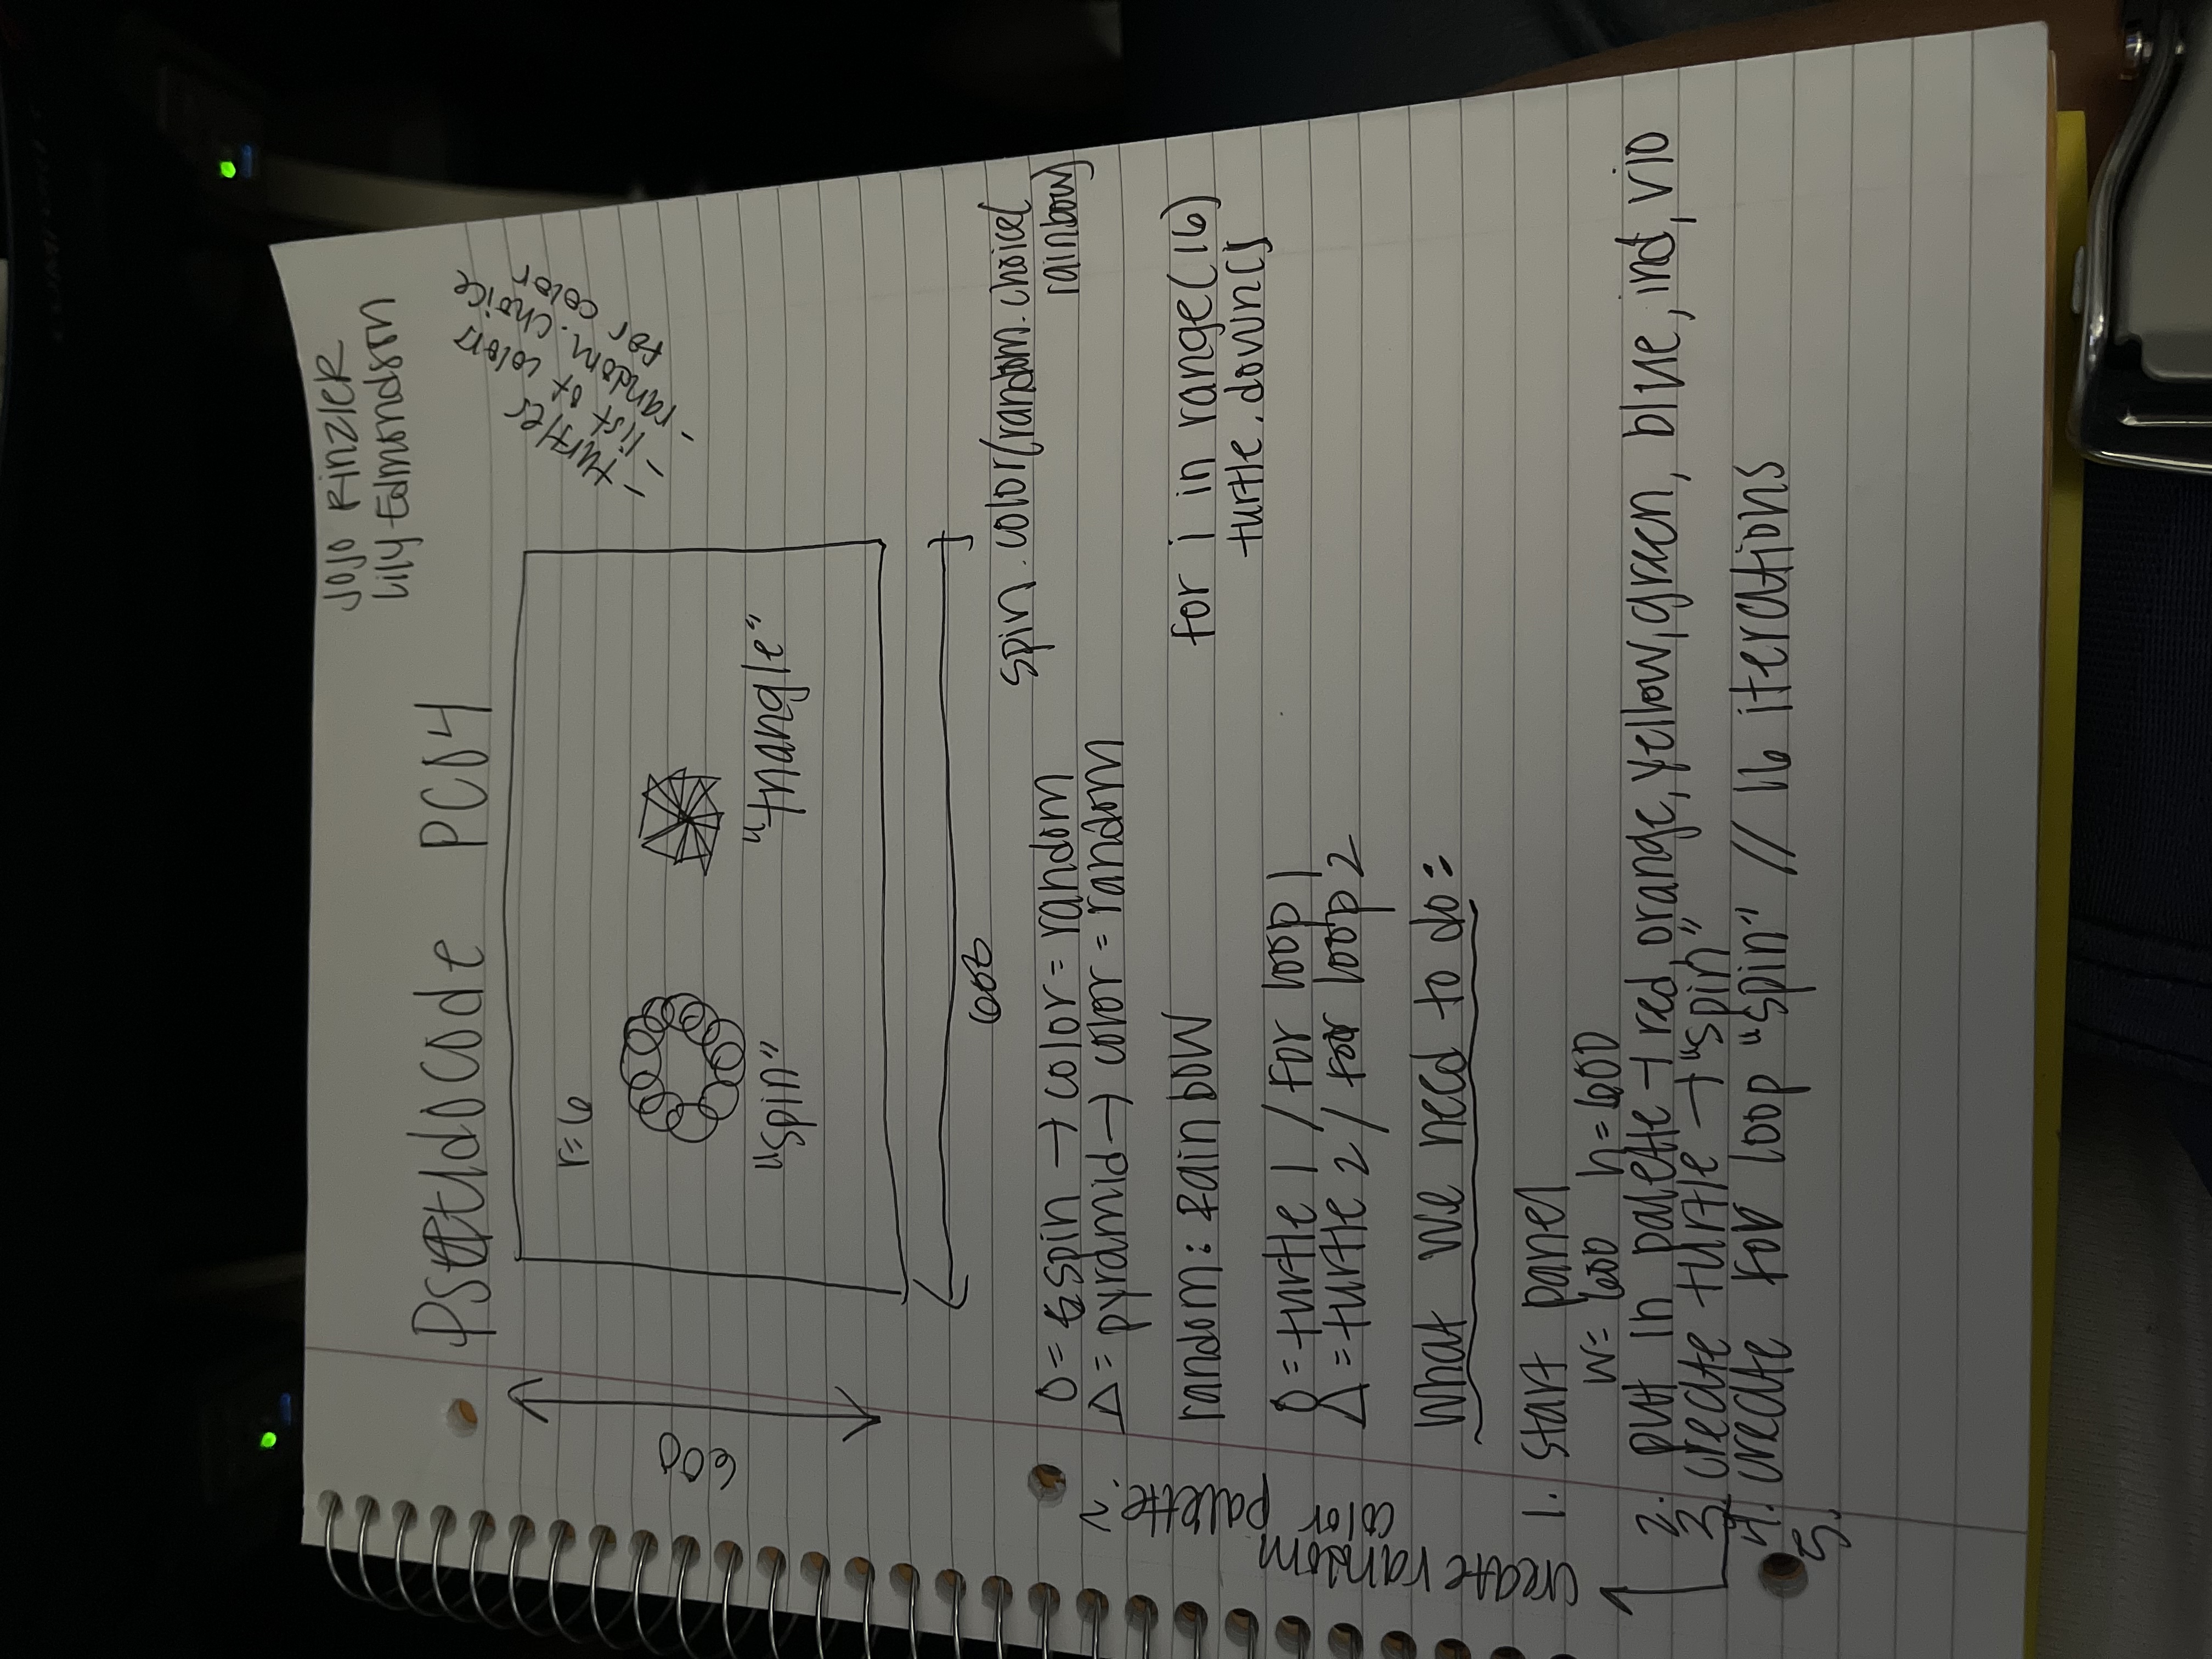 JOJO RINZLER
Lily Edmondson
Pseudocode PC04
- turtles
- list of colors
- random.choice
for color
r=6
600
"spin"
"triangle"
600
spin.color(random.choice(
rainbow)
O = spin → color = random
Δ = pyramid → color = random
create random
color palette?
random: Rainbow
for i in range(16)
turtle.down()
O = turtle 1 / for loop 1
Δ = turtle 2 / for loop 2
What we need to do:
1. start panel
w= 600 h=600
2. put in palette → red, orange, yellow, green, blue, ind, vio
3. create turtle → "spin"
4. create for loop "spin" // 16 iterations
5.